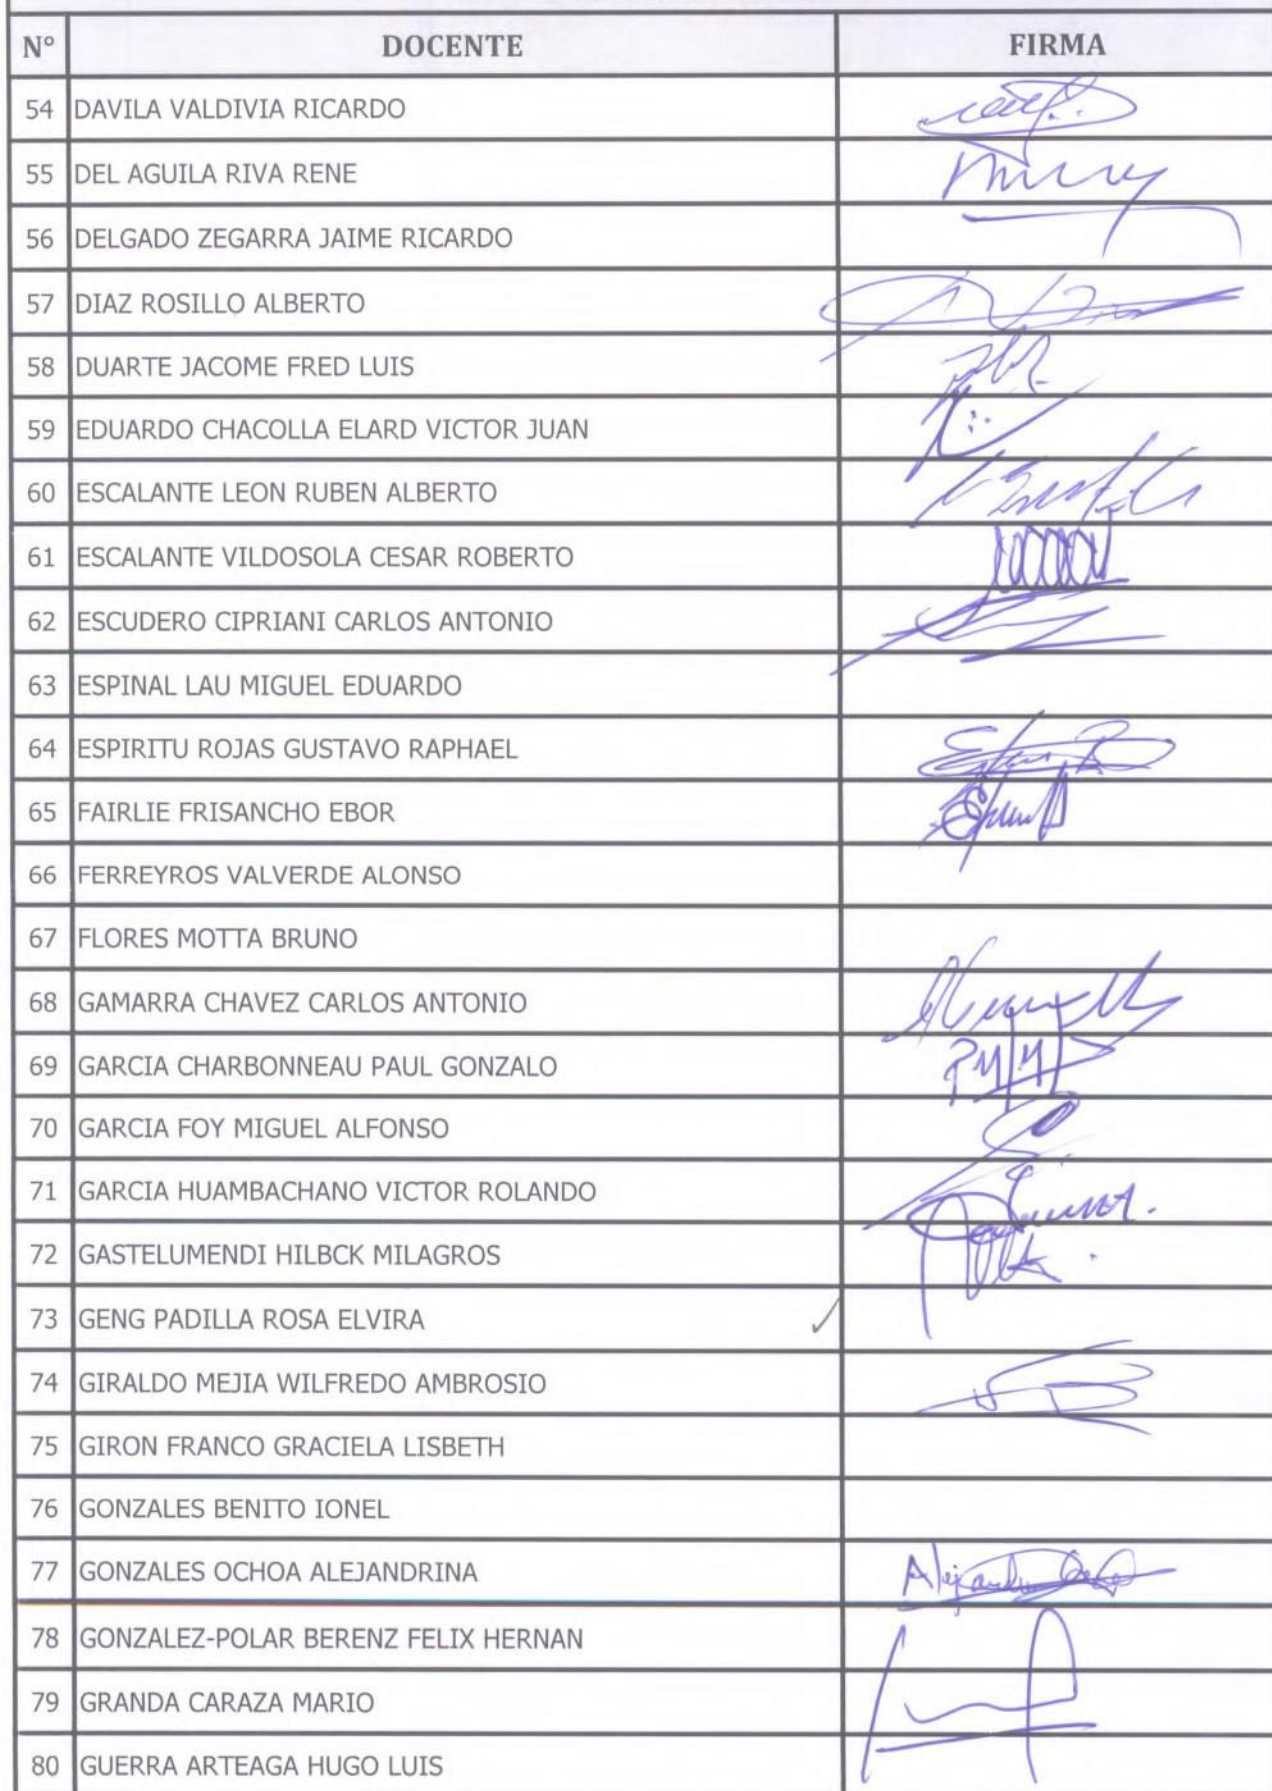 N° DOCENTE FIRMA
54 DAVILA VALDIVIA RICARDO
55 DEL AGUILA RIVA RENE
56 DELGADO ZEGARRA JAIME RICARDO
57 DIAZ ROSILLO ALBERTO
58 DUARTE JACOME FRED LUIS
59 EDUARDO CHACOLLA ELARD VICTOR JUAN
60 ESCALANTE LEON RUBEN ALBERTO
61 ESCALANTE VILDOSOLA CESAR ROBERTO
62 ESCUDERO CIPRIANI CARLOS ANTONIO
63 ESPINAL LAU MIGUEL EDUARDO
64 ESPIRITU ROJAS GUSTAVO RAPHAEL
65 FAIRLIE FRISANCHO EBOR
66 FERREYROS VALVERDE ALONSO
67 FLORES MOTTA BRUNO
68 GAMARRA CHAVEZ CARLOS ANTONIO
69 GARCIA CHARBONNEAU PAUL GONZALO
70 GARCIA FOY MIGUEL ALFONSO
71 GARCIA HUAMBACHANO VICTOR ROLANDO
72 GASTELUMENDI HILBCK MILAGROS
73 GENG PADILLA ROSA ELVIRA
74 GIRALDO MEJIA WILFREDO AMBROSIO
75 GIRON FRANCO GRACIELA LISBETH
76 GONZALES BENITO IONEL
77 GONZALES OCHOA ALEJANDRINA
78 GONZALEZ-POLAR BERENZ FELIX HERNAN
79 GRANDA CARAZA MARIO
80 GUERRA ARTEAGA HUGO LUIS